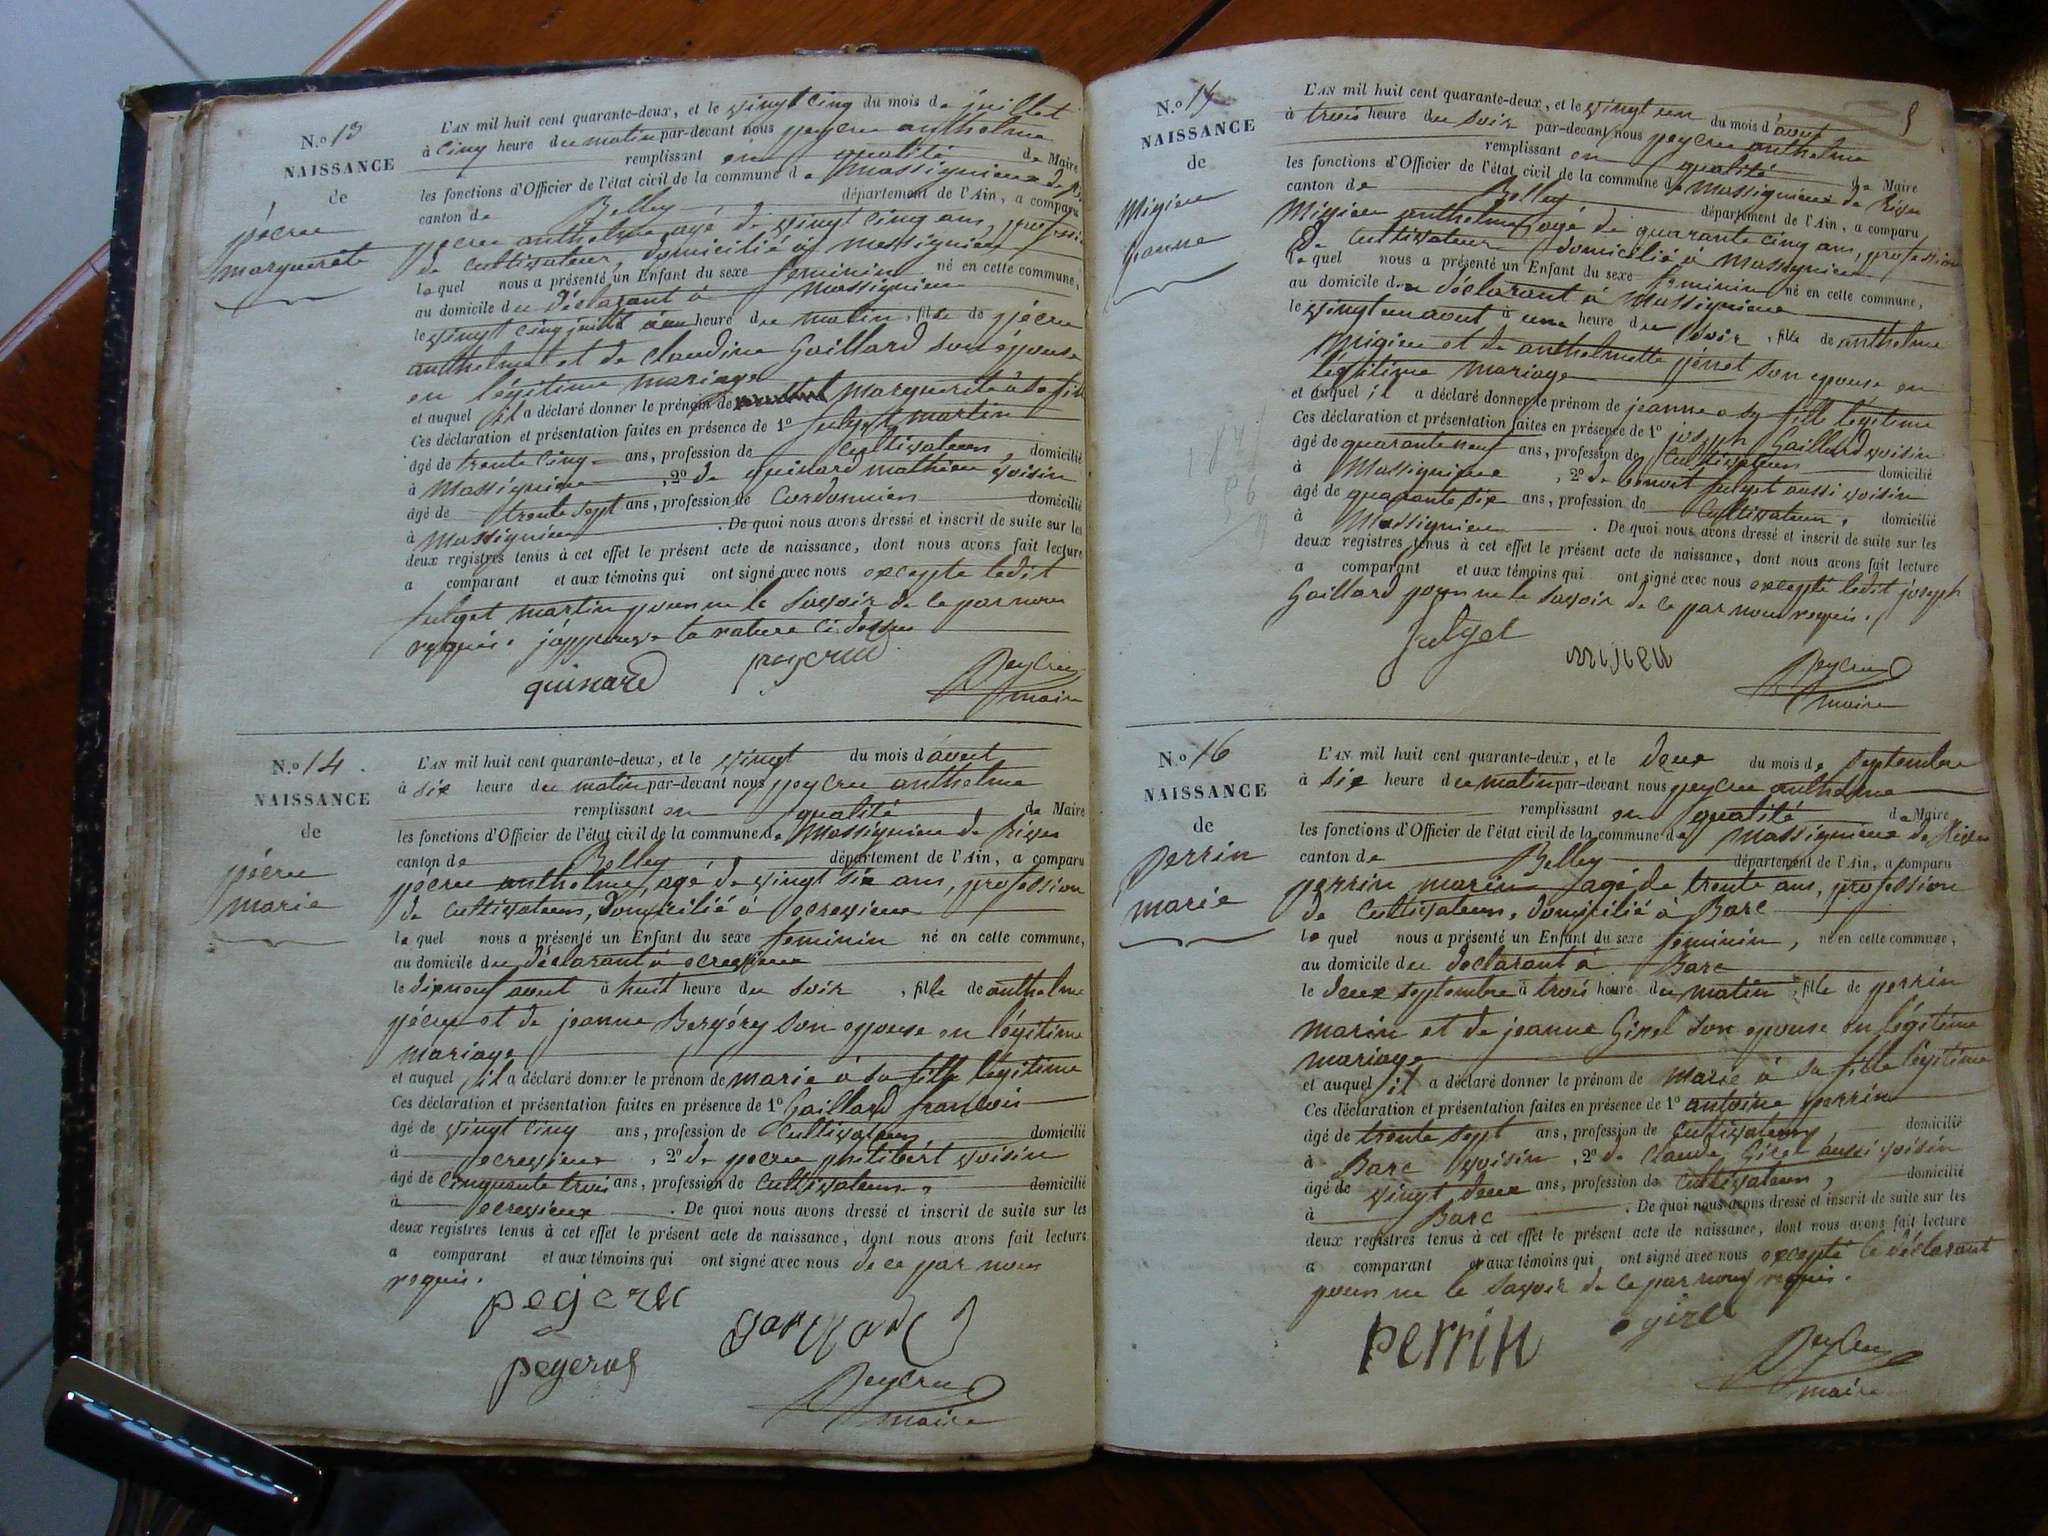 N.o 13
NAISSANCE
de
pécru
marguerite
L'AN mil huit cent quarante-deux, et le vingt cinq du mois de juillet
à cinq heure du matin par-devant nous peycru anthelme
remplissant en qualité de Maire
les fonctions d'Officier de l'état civil de la commune de massignieu de
canton de Belley département de l'Ain, a comparu
pécru anthelme agé de vingt cinq ans, professio
de cultivateur, domicilié à massignieu
lequel nous a présenté un Enfant du sexe feminin né en cette commune,
au domicile du déclarant à massignieu
le vingt cinq juillet à une heure du matin, fille de pécru
anthelme et de claudine Gaillard son épouse
en légitime mariage
et auquel il a déclaré donner le prénom de marguerite à sa fille
Ces déclaration et présentation faites en présence de 1o fulget martin
âgé de trente cinq ans, profession de cultivateur, domicilié
à massignieu, 2o de guinard mathieu voisin
âgé de trente sept ans, profession de Cordonnier domicilié
à massignieu. De quoi nous avons dressé et inscrit de suite sur les
deux registres tenus à cet effet le présent acte de naissance, dont nous avons fait lecture
a comparant et aux témoins qui ont signé avec nous excepte ledit
fulget martin pour ne le savoir de ce par nous
requis. j'approuve la rature ci dessus
guinard
Peycru
maire
N.o 14
NAISSANCE
de
pécru
marie
L'AN mil huit cent quarante-deux, et le vingt du mois d'avout
à six heure du matin par-devant nous peycru anthelme
remplissant en qualité de Maire
les fonctions d'Officier de l'état civil de la commune de Massignieu de Rives
canton de Belley département de l'Ain, a comparu
pécru anthelme, agé de vingt six ans, profession
de cultivateur, domicilié à ecrevieux
lequel nous a présenté un Enfant du sexe feminin né en cette commune,
au domicile du déclarant à ecrevieux
le dixneuf avout à huit heure du soir, fille de anthelme
pécru et de jeanne Bergéry son epouse en légitime
mariage
et auquel il a déclaré donner le prénom de marie à sa fille légitime
Ces déclaration et présentation faites en présence de 1o Gaillard francois
âgé de vingt cinq ans, profession de cultivateur domicilié
à ecrevieux, 2o de pecru philibért voisin
âgé de cinquante trois ans, profession de cultivateur, domicilié
à ecrevieux. De quoi nous avons dressé et inscrit de suite sur les
deux registres tenus à cet effet le présent acte de naissance, dont nous avons fait lecture
a comparant et aux témoins qui ont signé avec nous de ce par nous
requis.
Peycru
maire
N.o 15
NAISSANCE
de
Migieu
jeanne
L'AN mil huit cent quarante-deux, et le vingt un du mois d'avout
à trois heure du soir par-devant nous peycru anthelme
remplissant en qualité de Maire
les fonctions d'Officier de l'état civil de la commune de massignieu de Rives
canton de Belley département de l'Ain, a comparu
Migieu anthelme, agé de quarante cinq ans, profession
de cultivateur domicilié à massignieu
lequel nous a présenté un Enfant du sexe feminin né en cette commune,
au domicile du déclarant à Massignieu
le vingt un avout à une heure du soir, fille de anthelme
migieu et de anthelmette pénet son epouse en
légitime mariage
et auquel il a déclaré donner le prénom de jeanne a sa fille légitime
Ces déclaration et présentation faites en présence de 1o joseph Gaillard voisin
âgé de quarante neuf ans, profession de cultivateur domicilié
à Massignieu, 2o de benoit fulget aussi voisin
âgé de quarante six ans, profession de cultivateur, domicilié
à Massignieu. De quoi nous avons dressé et inscrit de suite sur les
deux registres tenus à cet effet le présent acte de naissance, dont nous avons fait lecture
a comparant et aux témoins qui ont signé avec nous excepté ledit joseph
Gaillard pour ne le savoir de ce par nous requis.
fulget
migieu
Peycru
maire
N.o 16
NAISSANCE
de
Perrin
marie
L'AN mil huit cent quarante-deux, et le deux du mois de septembre
à six heure du matin par-devant nous peycru anthelme
remplissant en qualité de Maire
les fonctions d'Officier de l'état civil de la commune de massignieu de Rives
canton de Belley département de l'Ain, a comparu
perrin marin agé de trente ans, profession
de cultivateur, domicilié à Barc
lequel nous a présenté un Enfant du sexe feminin, né en cette commune,
au domicile du declarant à Barc
le deux septembre à trois heure du matin, fille de perrin
marin et de jeanne Girel son epouse en légitime
mariage
et auquel il a déclaré donner le prénom de marie à sa fille légitime
Ces déclaration et présentation faites en présence de 1o antoine perrin
âgé de trente sept ans, profession de cultivateur, domicilié
à Barc voisin, 2o de claude Girel aussi voisin
âgé de vingt deux ans, profession de cultivateur, domicilié
à Barc. De quoi nous avons dressé et inscrit de suite sur les
deux registres tenus à cet effet le présent acte de naissance, dont nous avons fait lecture
a comparant et aux témoins qui ont signé avec nous excepté le déclarant
pour ne le savoir de ce par nous requis.
perrin
girel
Peycru
maire